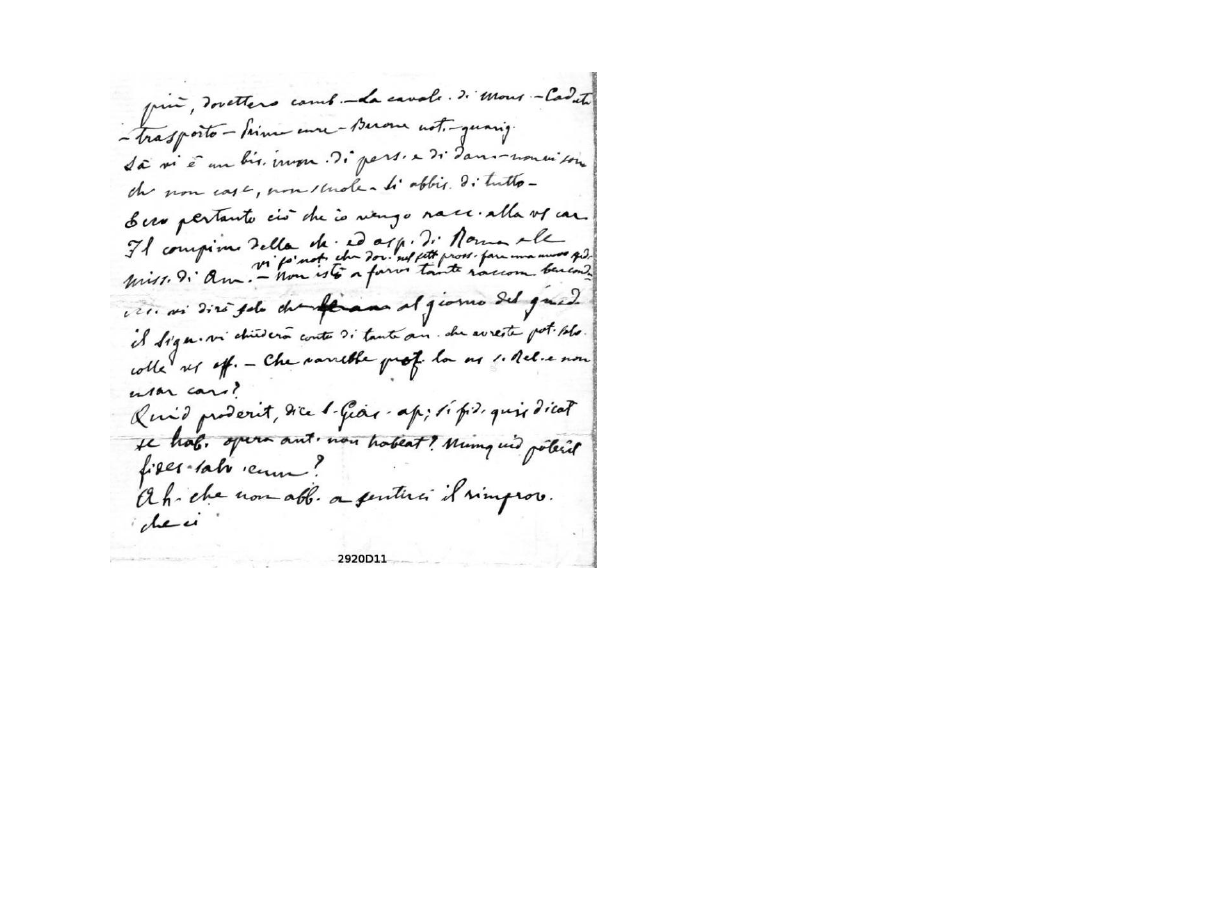 più, dovettero camb. – La caval. di Mons. – Caduta
– trasporto – Prime cure – Barone not. – guarig.
Là vi è un bis. imm. di pers. e di dan. – non vi son
ch non case, non scuole – Si abbis. di tutto –
Ecco pertanto ciò che io vengo racc. alla vs car.
Il compim. della ch. ed osp. di Roma e le
vi fo not. che dov. nel sett pross. fare una nuova sped.
miss. di Am. – Non istò a farvi tante raccom.
vi dirò solo che al giorno del giud
il Sign. vi chiuderà conto di tante an. che avreste pot. salv.
colle vs off. – Che varrebbe prof. la ns s. Rel. e non
usar car.?
Quid proderit, dice S. Giac. ap; si fid. quis dicat
se hab. opera aut. non habeat? Numquid poterit
fides salv. eum?
Ah. che non abb. a sentirci il rimprov.
che ci
2920D11